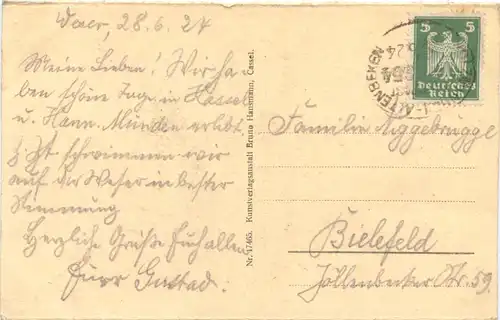 28.6.24
Meine Lieben! Wir ha-
ben schöne Tage in Kassel
u. Hann. Münden erlebt.
Jetzt schwimmen wir
auf der Weser in bester
Stimmung
Herzliche Grüße Euch allen
Euer Gustav.
Nr. 17465. Kunstverlagsanstalt Bruno Hansmann, Cassel.
5 5
Deutsches
Reich
ALTENBEKEN
Familie Niggebrügge
Bielefeld
Jöllenbecker Str. 59.